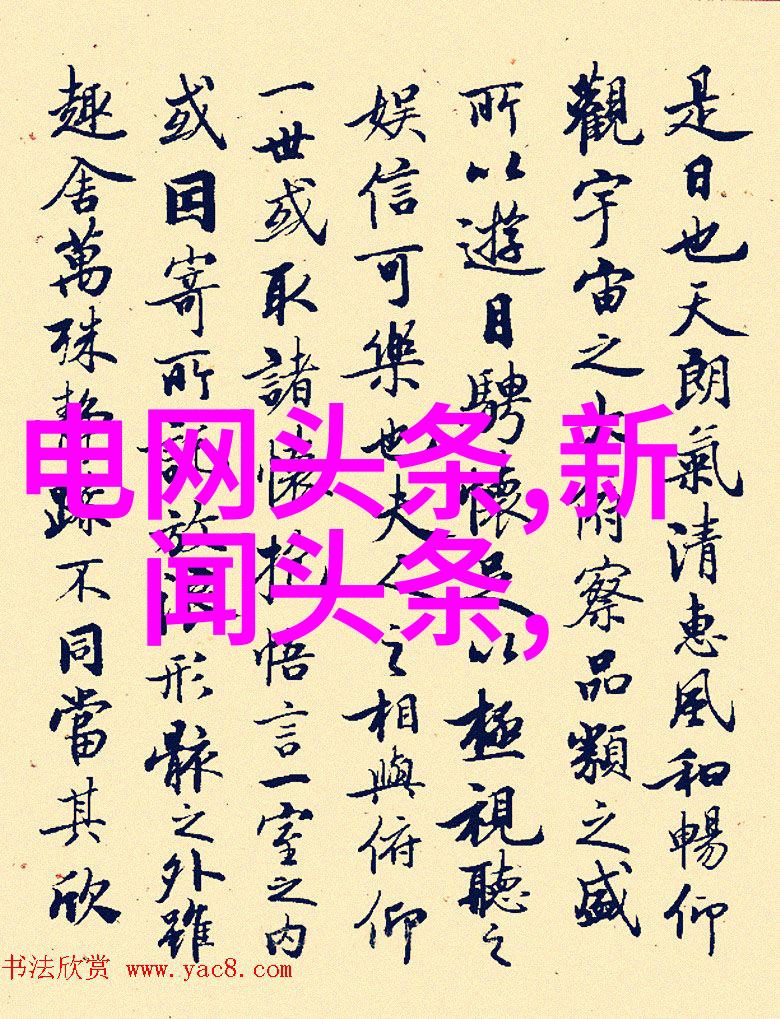 是日也天朗氣清惠風和暢仰
觀宇宙之大俯察品類之盛
所以遊目騁懷足以極視聽之
娛信可樂也夫人之相與俯仰
一世或取諸懷抱悟言一室之内
或因寄所託放浪形骸之外雖
趣舍萬殊静躁不同當其欣
电网头条,新
闻头条,
书法欣赏 www.yac8.com